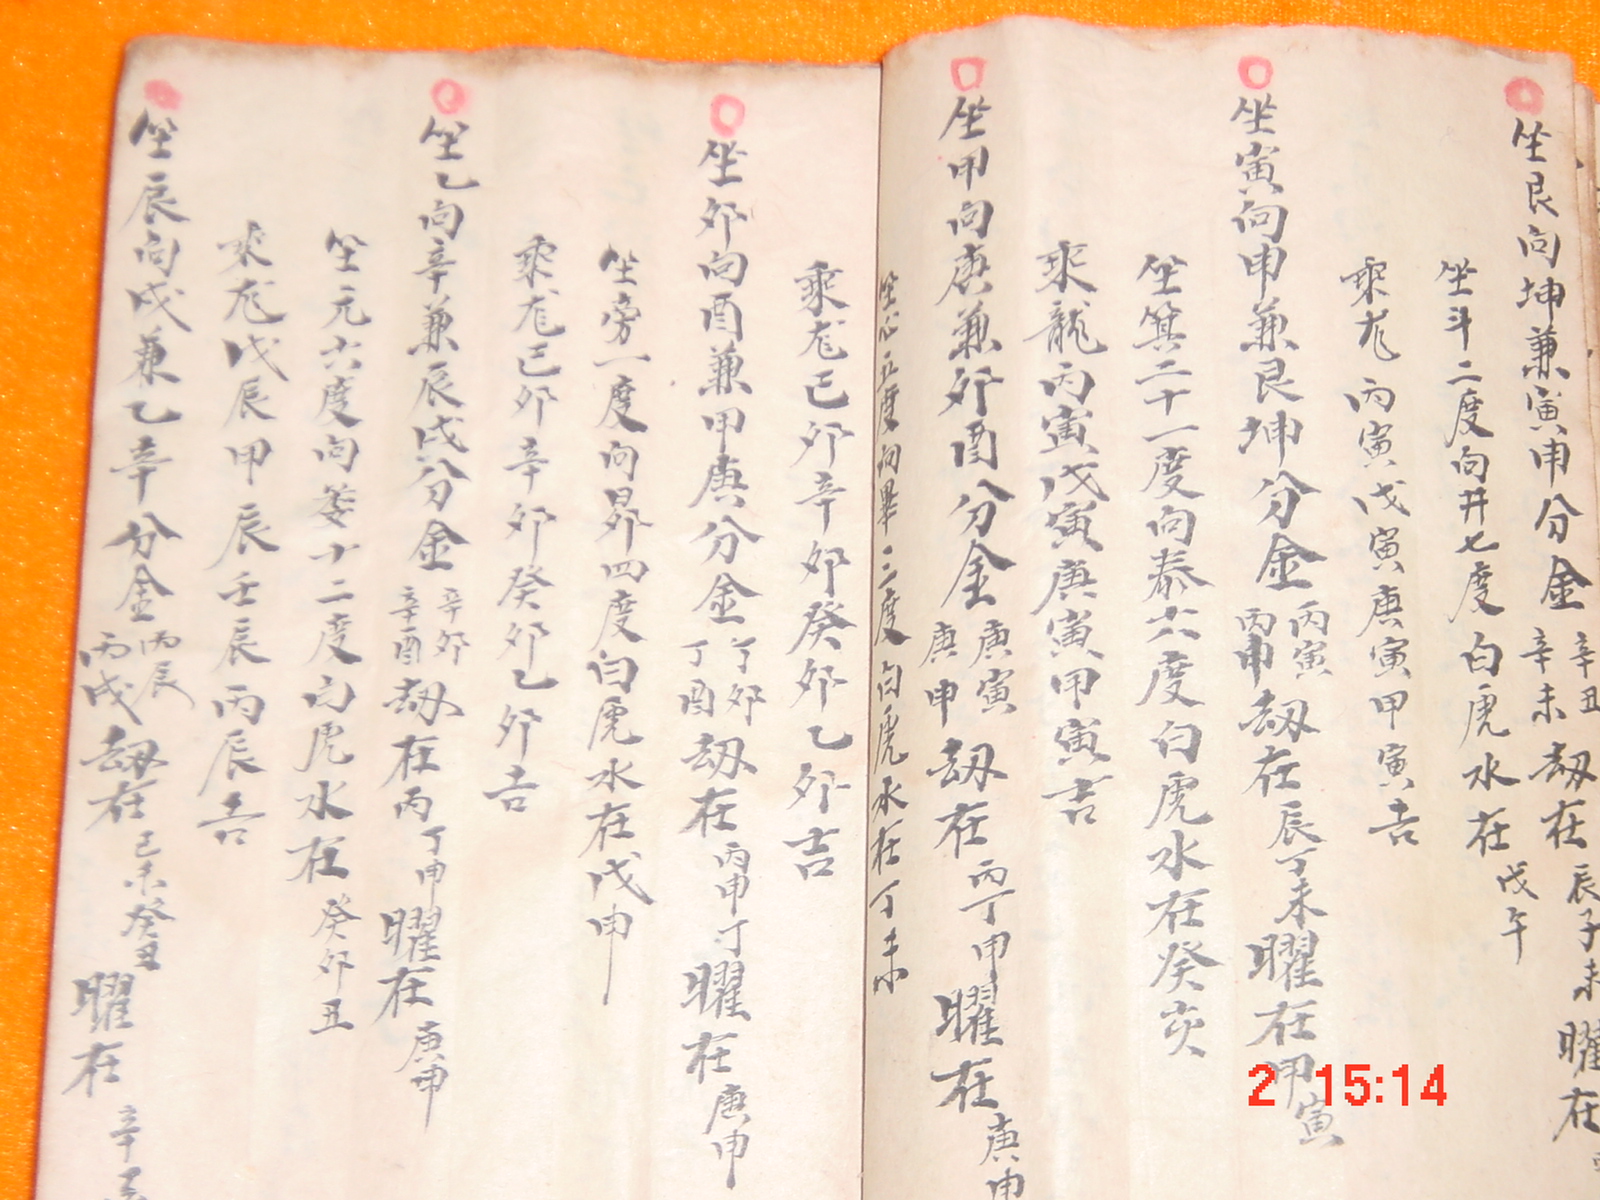 坐艮向坤兼寅申分金辛丑辛未劫在辰子未曜在
坐斗二度向井七度白虎水在戊午
乘龙丙寅戊寅庚寅甲寅吉
坐寅向申兼艮坤分金丙寅丙申劫在辰丁未曜在甲寅
坐箕二十一度向泰六度白虎水在癸亥
乘龍丙寅戊寅庚寅甲寅吉
坐甲向庚兼卯酉分金庚寅庚申劫在丙丁申曜在庚申
坐心五度向畢三度白虎水在丁未
乘龙己卯辛卯癸卯乙卯吉
坐卯向酉兼甲庚分金丁卯丁酉劫在丙申丁曜在庚申
坐旁一度向昴四度白虎水在戊申
乘龙己卯辛卯癸卯乙卯吉
坐乙向辛兼辰戌分金辛卯辛酉劫在丙丁申曜在庚申
坐元六度向娄十二度白虎水在癸卯丑
乘龙戊辰甲辰壬辰丙辰吉
坐辰向戌兼乙辛分金丙辰丙戌劫在己未癸丑曜在辛
2 15:14